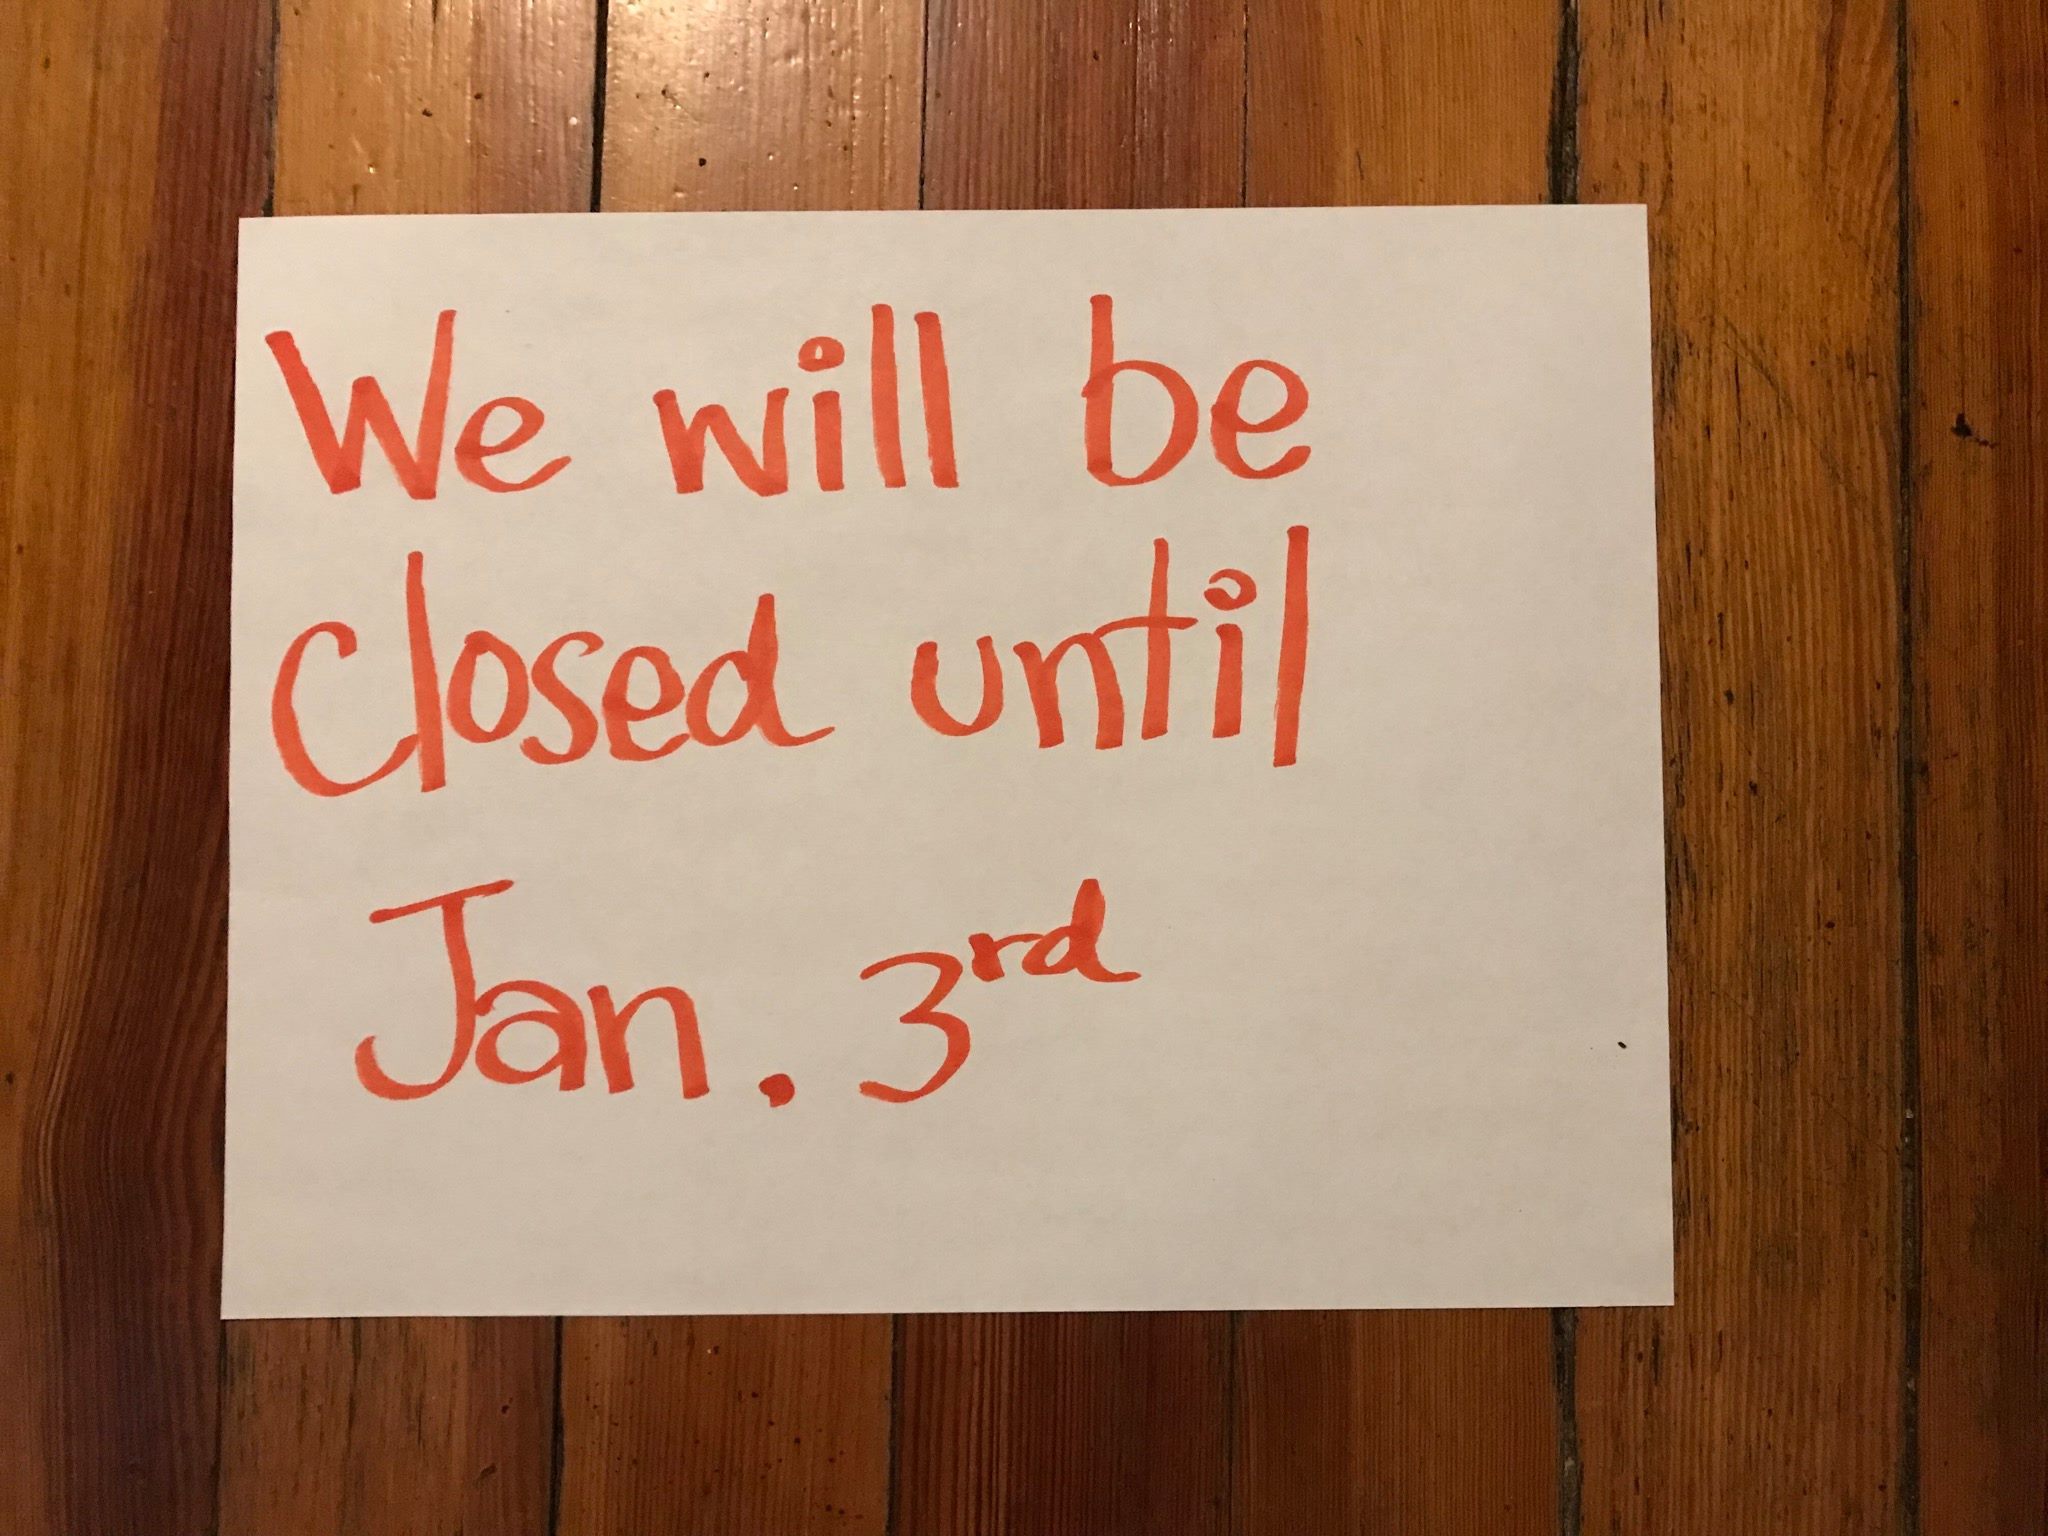 We will be
closed until
Jan. 3rd